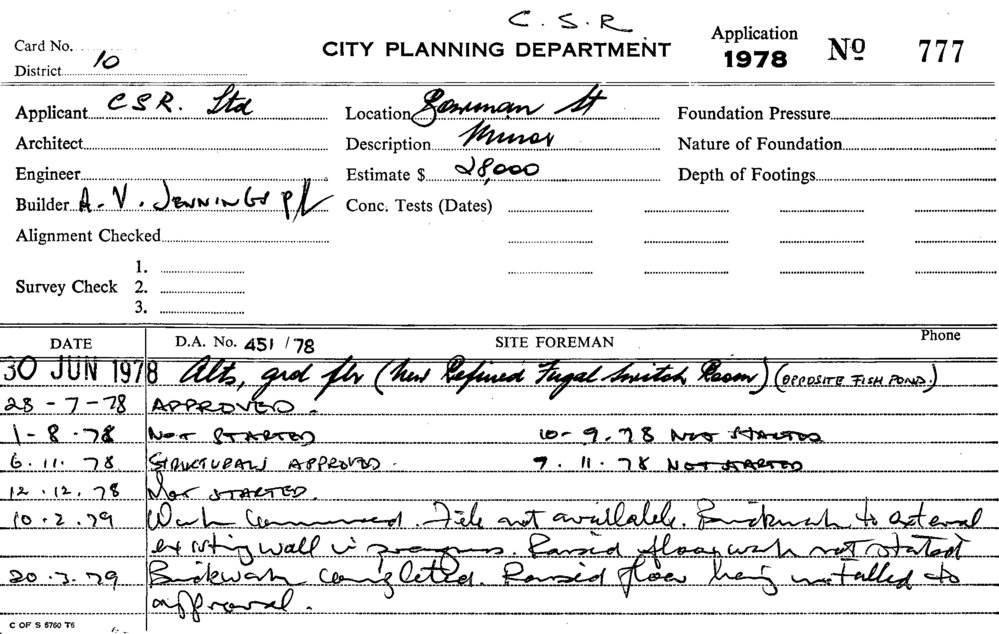 C. S. R
Card No.
CITY PLANNING DEPARTMENT
Application
1978 No 777
District 10
Applicant C S R. Ltd
Location Bowman St
Foundation Pressure
Architect
Description Minor
Nature of Foundation
Engineer
Estimate $ 28,000
Depth of Footings
Builder A. V. JENNINGS P/L
Conc. Tests (Dates)
Alignment Checked
1.
Survey Check 2.
3.
DATE D.A. No. 451 / 78 SITE FOREMAN Phone
30 JUN 1978 Alts, grd flr (New Refined Fugal Switch Room) (OPPOSITE FISH POND.)
28 - 7 - 78 APPROVED.
1 - 8 . 78 NOT STARTED 10 - 9 . 78 NOT STARTED
6 . 11 . 78 STRUCTURALS APPROVED. 7 . 11 . 78 NOT STARTED
12 . 12 . 78 NOT STARTED.
10 . 2 . 79 Work commenced. File not available. Brickwork to external
existing wall in progress. Raised floor work not started
20 . 3 . 79 Brickwork completed. Raised floor being installed to
approval.
C OF S 5760 T6